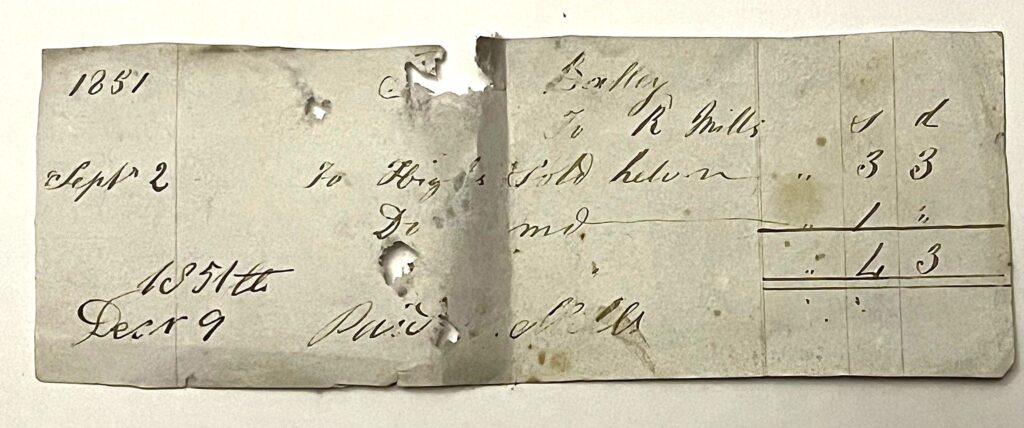 1851 Bolley
To R Mills s d
Sept 2 To High s Sold heeln „ 3 3
Do md „ 1 „
„ 4 3
1851th
Decr 9 Paid Mills